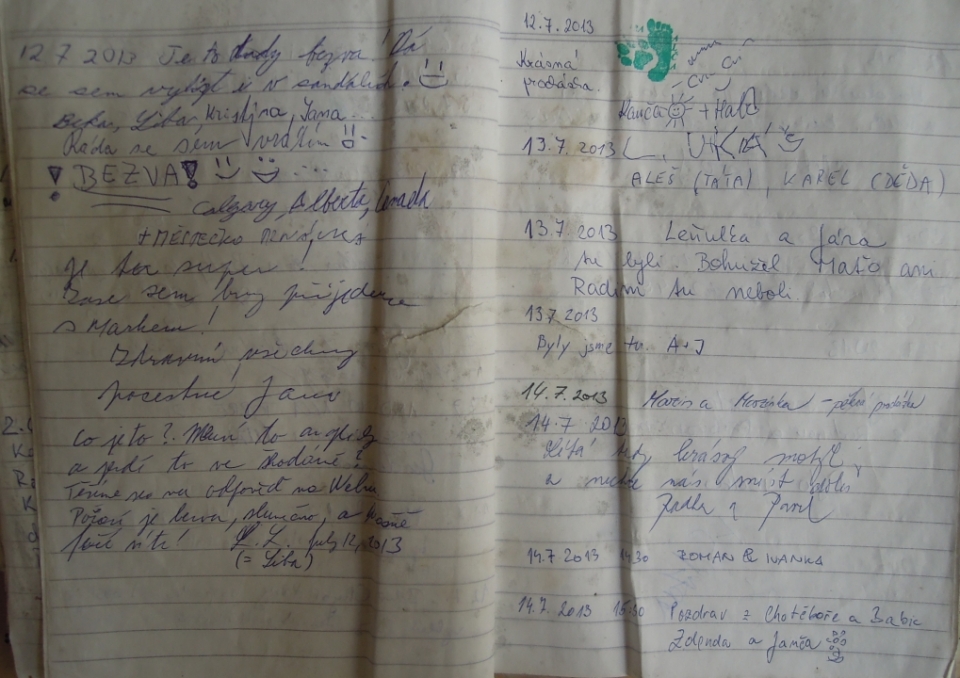 12 7 2013 Je to tady bezva! Dá
se sem vylézt i v sandálech.
Liba, Kristina, Jana...
Ráda se sem vrátím
! BEZVA! ....
Calgary, Alberta, Canada
+ MĚSTEČKO
Je tu super!
Zase sem brzy přijedeme
s Markem!
Zdravím všechny
pocestné Jana
Co je to? Mluví to anglicky
a jezdí to ve Škodově?
Těšíme se na odpověď na Webu
Počasí je bezva, slunečno, a
fučí vítr! L. Z. july 12, 2013
(= Liba)
12.7.2013
Krásná
procházka.
Kanča + Halo
13.7.2013 L. UKÁŠ
ALEŠ (TÁTA), KAREL (DĚDA)
13.7 2013 Leňulka a Jára
tu byli. Bohužel Maťo ani
Radim tu neboli.
13.7 2013
Byly jsme tu. A+J
14.7.2013 a Mařenka - pěkná
14.7 2013
Lítá tady krásný motýl,
a nechce nás
Radka a Pavel
14.7 2013 14:30 ROMAN & IVANKA
14.7. 2013 16:30 Pozdrav z Chotěboře a Babic
Zdenda a Janča